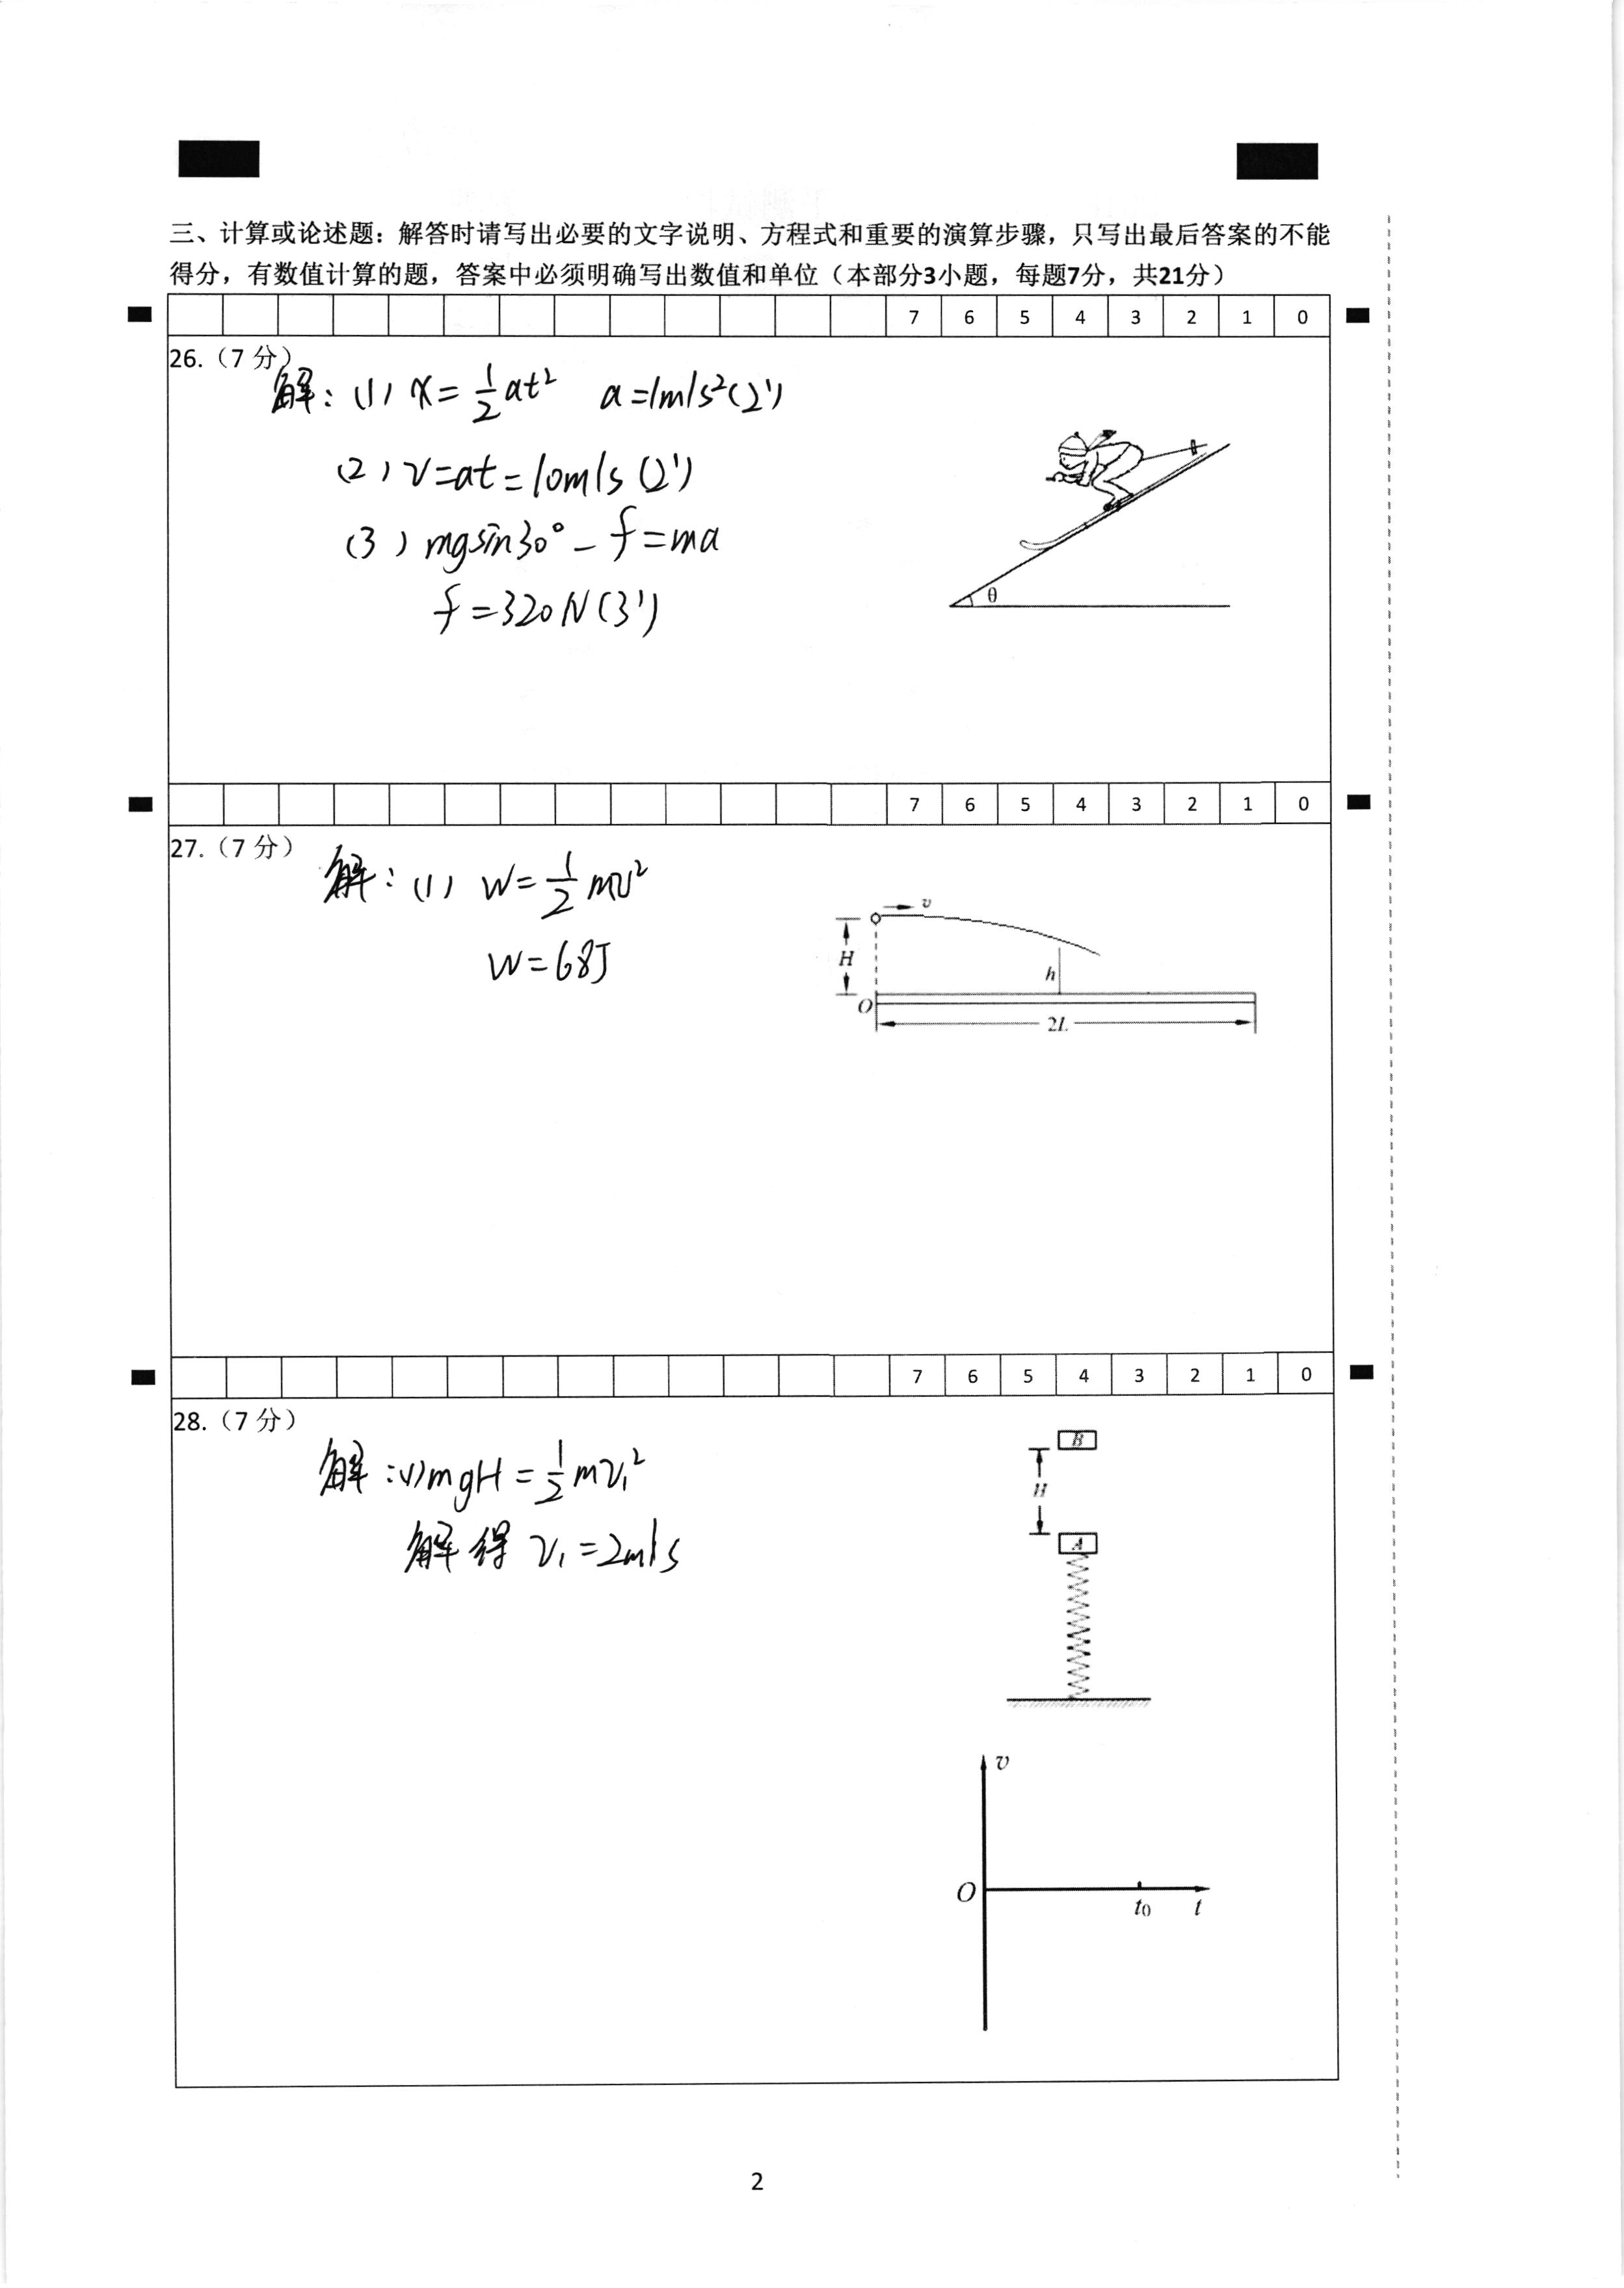 三、计算或论述题：解答时请写出必要的文字说明、方程式和重要的演算步骤，只写出最后答案的不能
得分，有数值计算的题，答案中必须明确写出数值和单位（本部分3小题，每题7分，共21分）
7 6 5 4 3 2 1 0
26.（7 分）
解：(1) x=1/2at² a=1m/s²(2')
(2) v=at=10m/s (2')
(3) mgsin30°-f=ma
f=320N(3')
θ
7 6 5 4 3 2 1 0
27.（7 分）
解：(1) W=1/2mv²
W=68J
v
H
h
O
2L
7 6 5 4 3 2 1 0
28.（7 分）
解：(1)mgH=1/2mv₁²
解得 v₁=2m/s
B
H
A
v
O
t₀ t
2